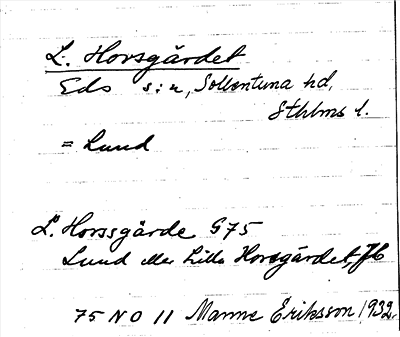 L. Horsgärdet
Eds s:n, Sollentuna hd,
Sthlms l.
= Lund
L. Horssgärde G75
Lund eller Lilla Horsgärdet, JK
75 NO 11 Manne Eriksson 1932.